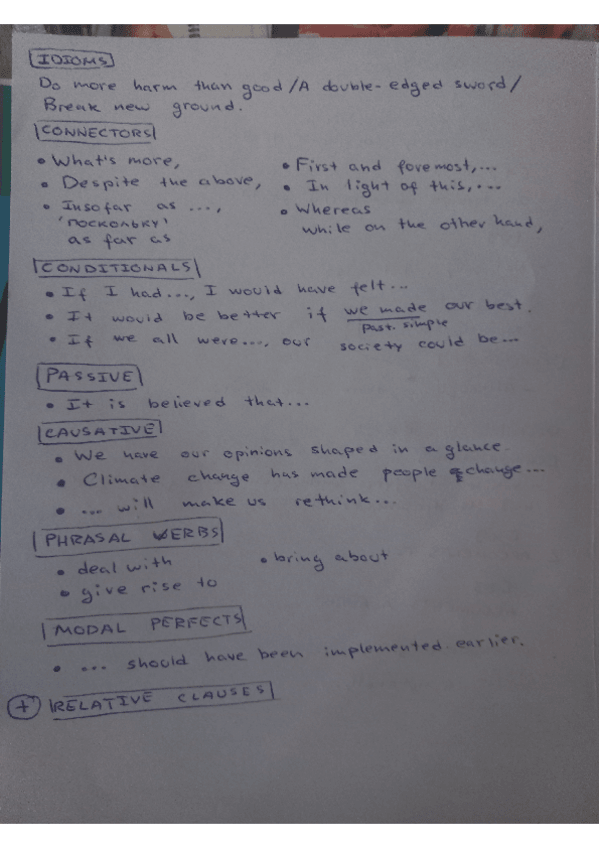 IDIOMS
Do more harm than good/A double-edged sword/
Break new ground.
CONNECTORS
• What's more,
• Despite the above,
• Insofar as ...,
'поскольку'
as far as
• First and foremost,...
• In light of this,...
• Whereas
while on the other hand,
CONDITIONALS
• If I had..., I would have felt...
• It would be better if we made our best.
Past simple
• If we all were..., our society could be...
PASSIVE
• It is believed that...
CAUSATIVE
• We have our opinions shaped in a glance.
• Climate change has made people change...
• ... will make us rethink...
PHRASAL VERBS
• deal with
• give rise to
• bring about
MODAL PERFECTS
• ... should have been implemented earlier.
+ RELATIVE CLAUSES